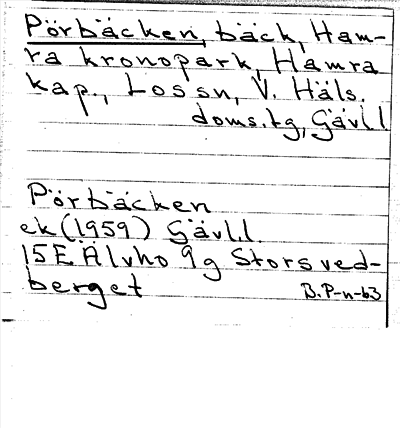 Pörbäcken, bäck, Ham-
ra kronopark, Hamra
kap., Lossn, V. Häls.
doms.tg, Gävll
Pörbäcken
ek (1959) Gävll.
15E Älvho 9g Storsved-
berget
B.P-n-63